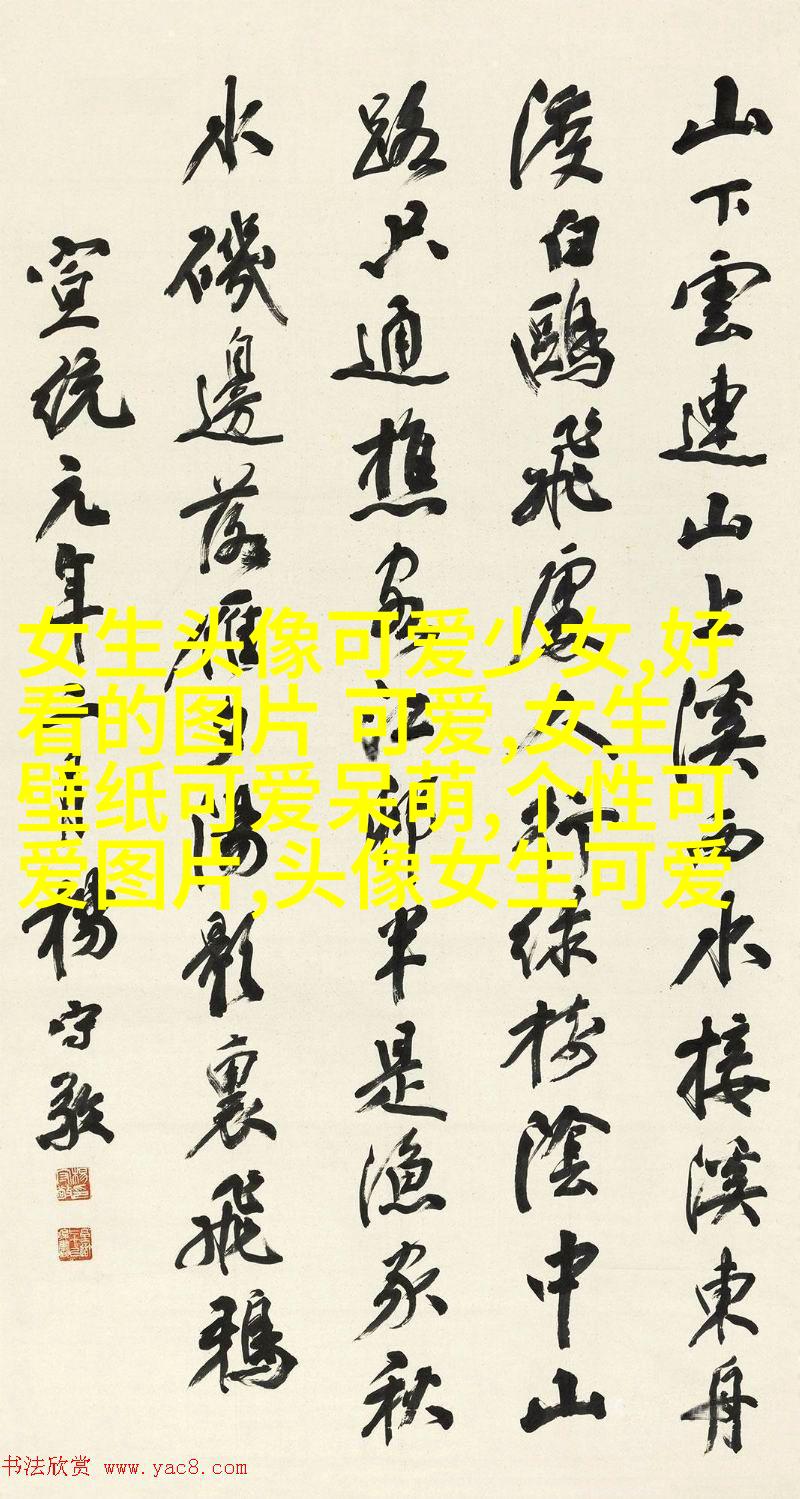 山下雲連山上溪西水接溪東舟
渡白鷗飛處人行綠樹陰中山
路只通樵客江邨半是漁家秋
水磯邊落雁夕陽影裏飛鴉
宣統元年 楊守敬
女生头像可爱少女,好
看的图片 可爱,女生
壁纸可爱呆萌,个性可
爱图片,头像女生可爱
书法欣赏 www.yac8.com